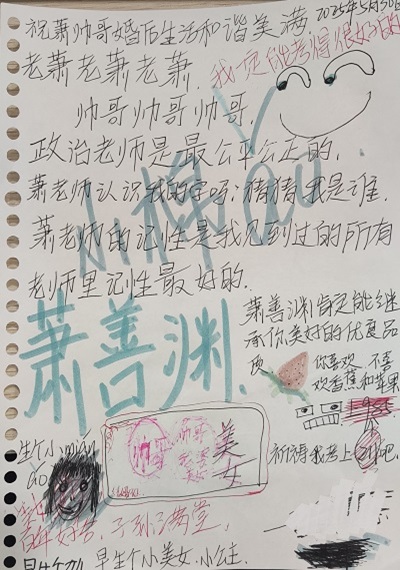 祝萧帅哥婚后生活和谐美满 2025年5月30日
老萧老萧老萧. 我一定能考得很好的
帅哥帅哥帅哥.
政治老师是最公平公正的.
萧老师认识我的字吗:猜猜我是谁.
萧老师的记性是我见到过的所有
老师里记性最好的.
小棉
萧善渊.
萧善渊肯定能继
承你美好的优良品
质
你喜欢 不喜
欢香蕉和苹果
帅哥
美女
生个小
祈祷我考上 吧.
百年好合, 子孙满堂,
早生个 早生个小美女.小公主.